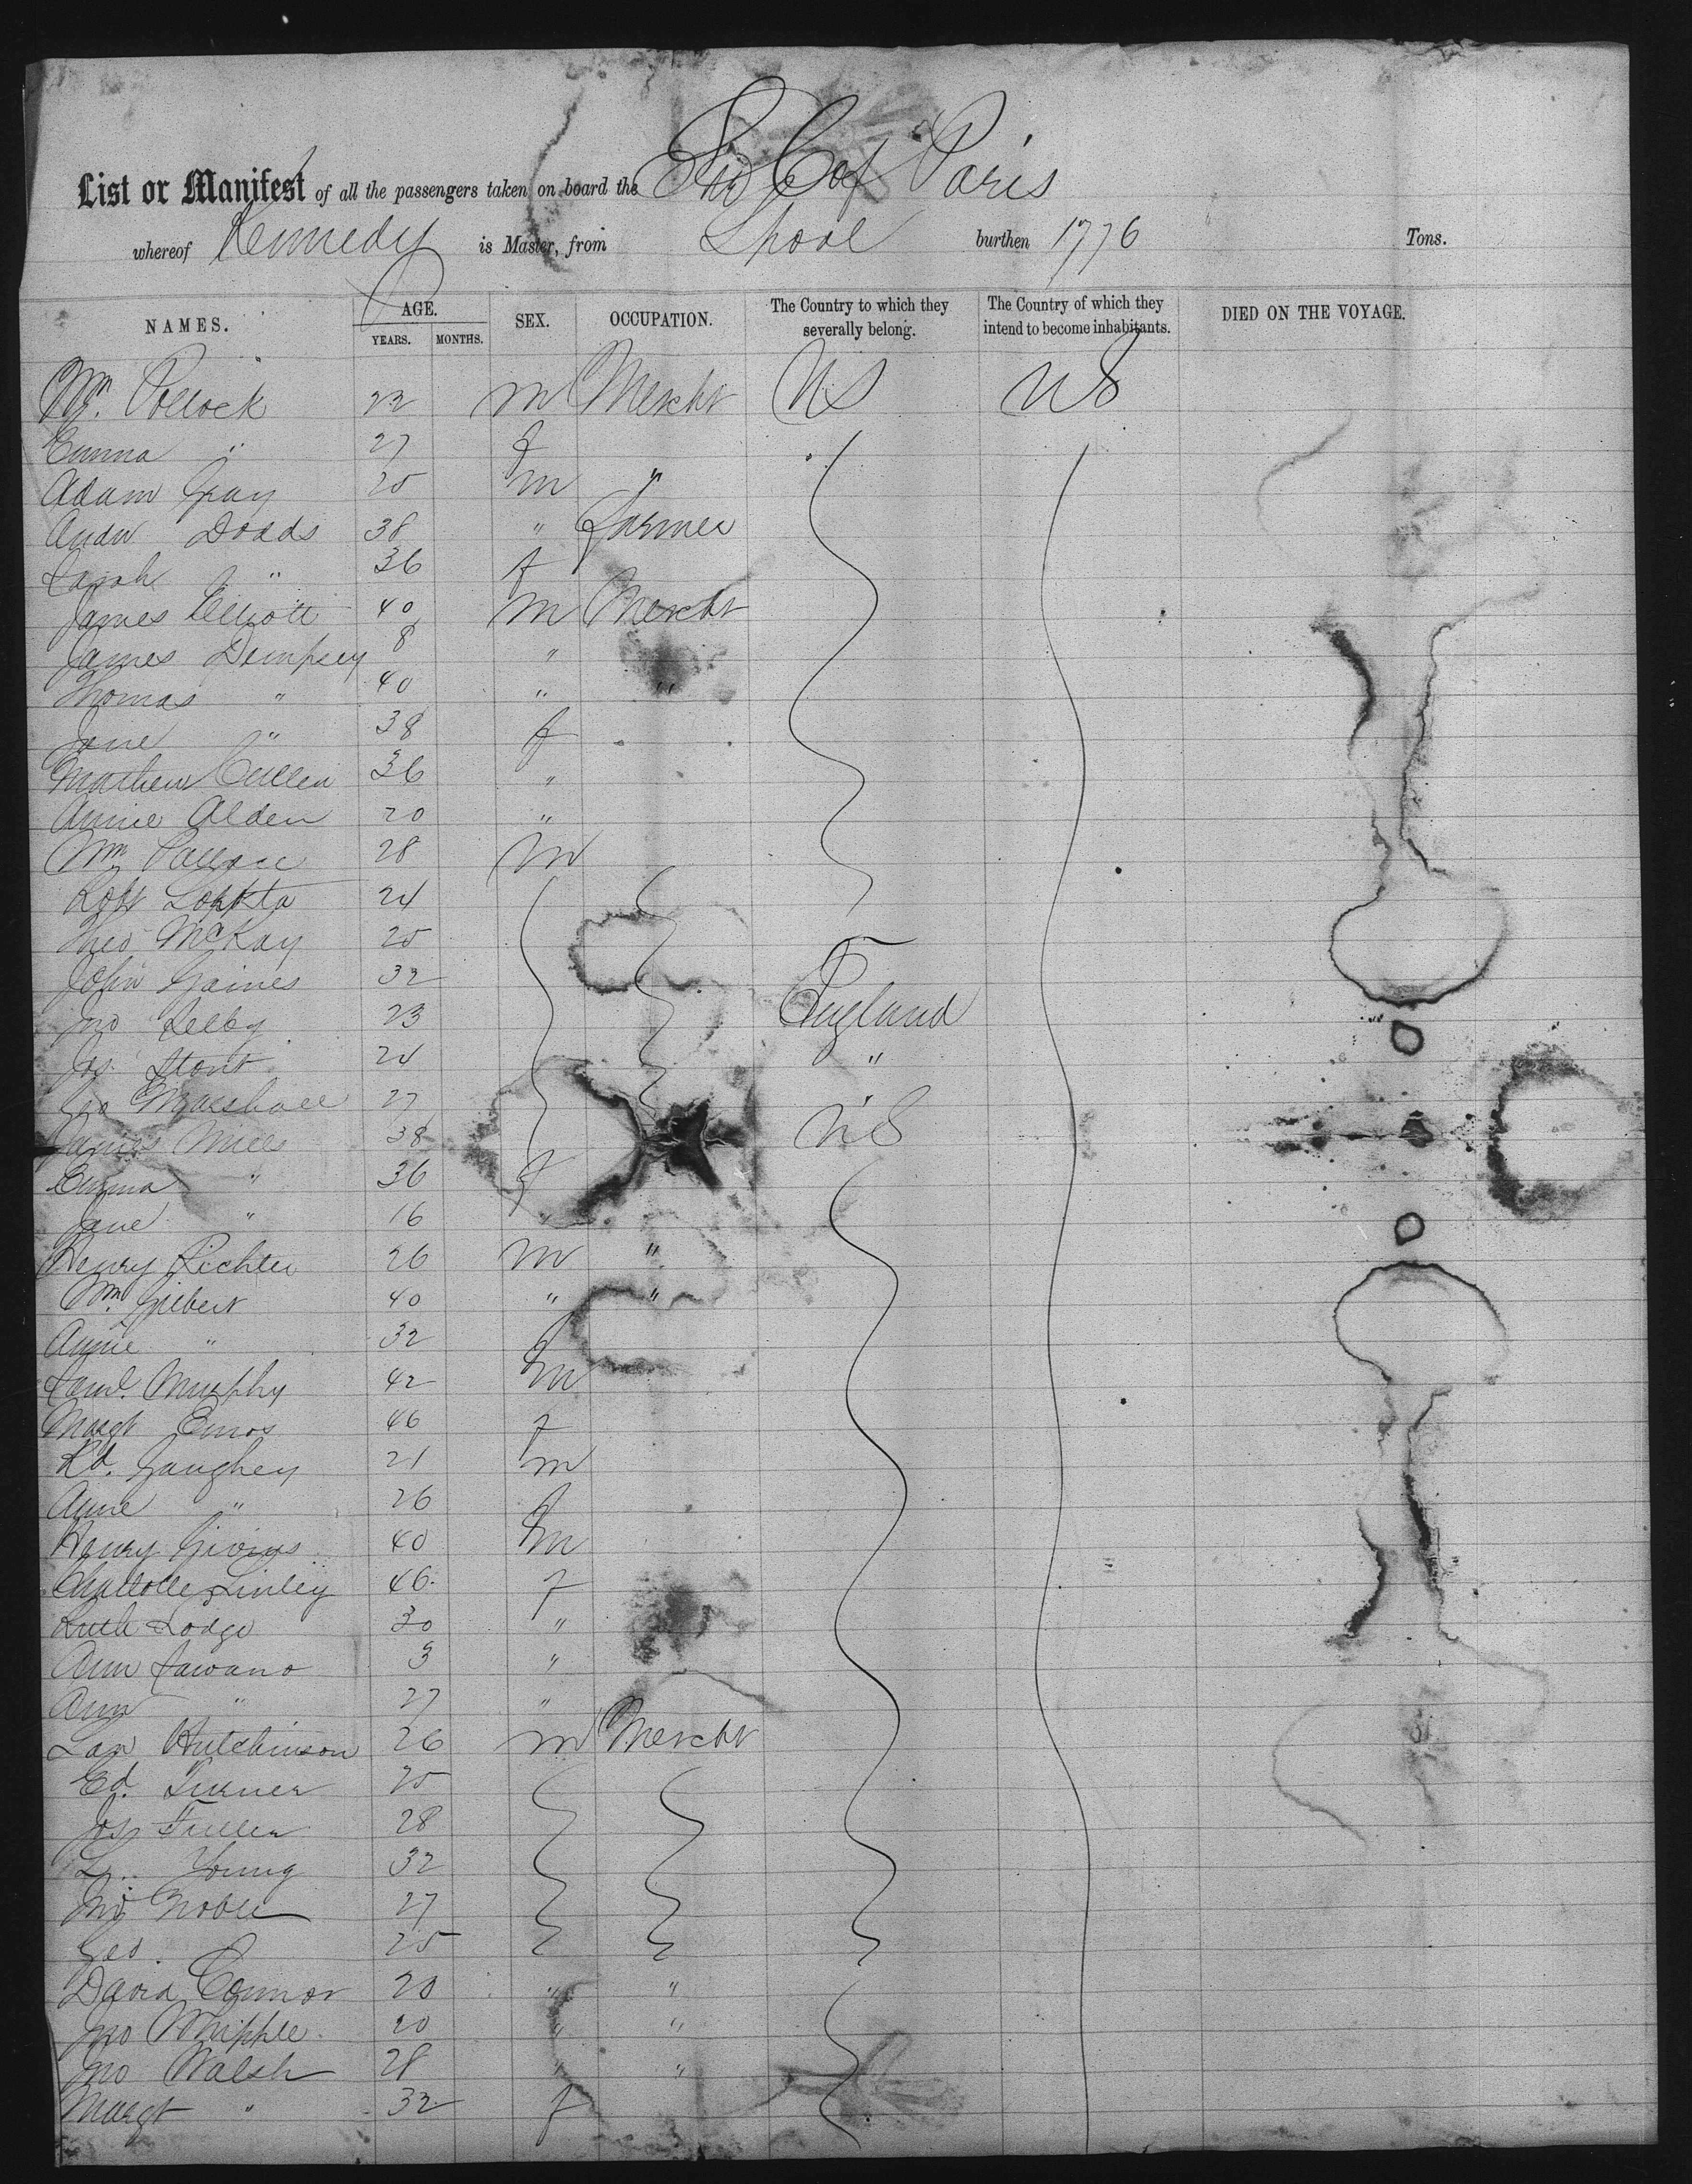 List or Manifest of all the passengers taken on board the C of Paris
whereof Kennedy is Master, from Lpool burthen 1776 Tons.
NAMES. AGE. YEARS. MONTHS. SEX. OCCUPATION. The Country to which they severally belong. The Country of which they intend to become inhabitants. DIED ON THE VOYAGE.
Wm. Pollock 23 m Mercht US US
Emma " 27 f
Adam Gray 25 m "
Andw Dodds 38 " Farmer
Sarah " 36 f
James Elliott 40 m Mercht
James Dempsey 8 "
Thomas " 40 " "
Jane " 38 f
Mathew Cullen 36 "
Annie Alden 20 "
Wm 28 m
Robt 24
Theo McKay 25
John Gaines 32
Jno Selby 23 England
Jos. Stout 24 "
Geo Marshall 27
James Mills 38 US
Emma " 36 f
Jane " 16 "
Henry Richter 26 m "
Wm. Gilbert 40 " "
Annie " 32 f
Saml. Murphy 42 m
Margt Enros 46 f
Rd. Gaughey 21 m
Anne " 26 f
Henry Givins 40 m
Charlotte Linley 46. f
Ruth Lodge 30 "
Ann 3 "
Ann " 27 "
Hutchinson 26 m Mercht
Ed. Turner 25
Jos Fuller 28
Young 32
Jno Noble 27
Geo. 25
David Connor 20 " "
Jno Whipple 20 " "
Jno Walsh 28 " "
Margt " 32 f